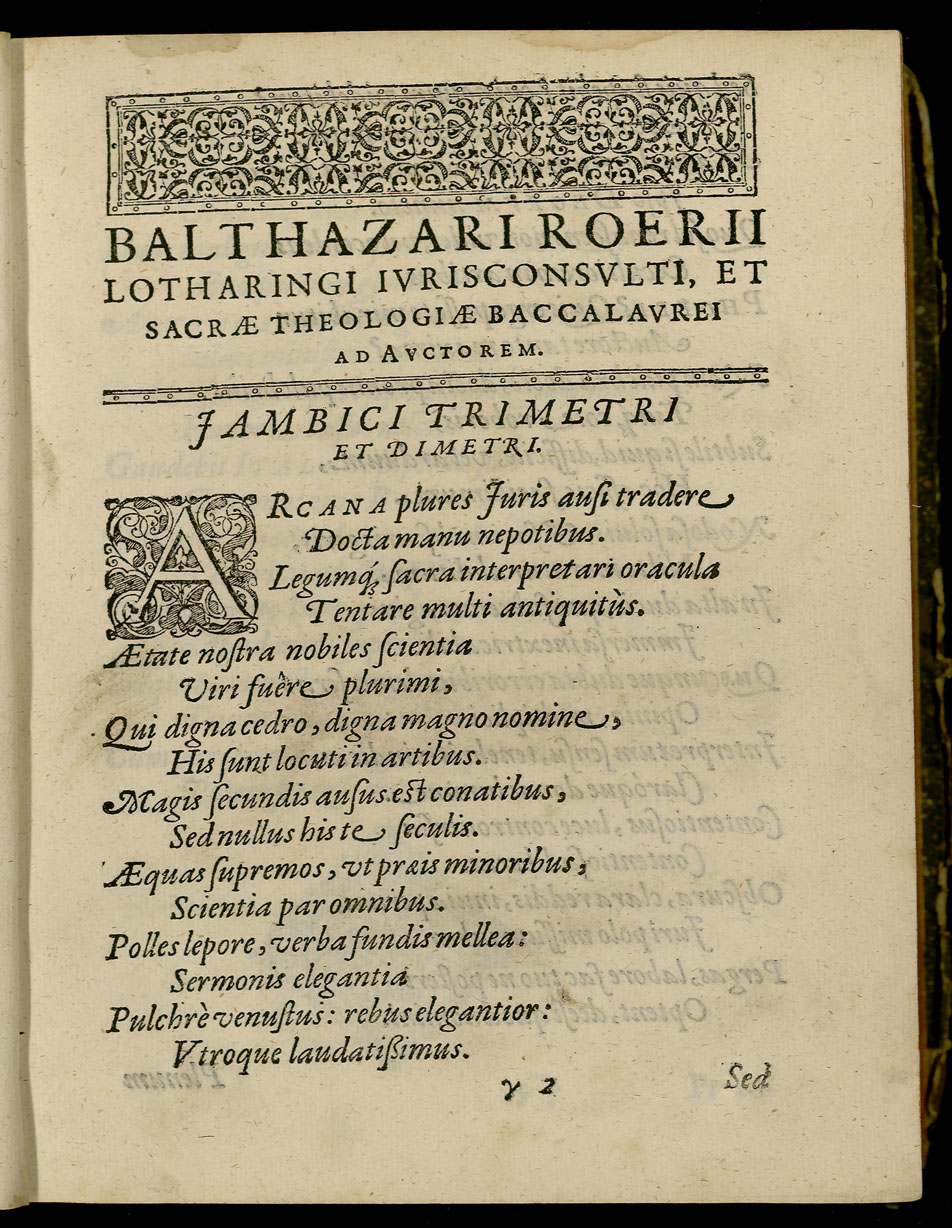 BALTHAZARI ROERII
LOTHARINGI IVRISCONSVLTI, ET
SACRÆ THEOLOGIÆ BACCALAVREI
AD AVCTOREM.
JAMBICI TRIMETRI
ET DIMETRI.
ARCANA plures Juris auſi tradere
Docta manu nepotibus.
Legumq́; ſacra interpretari oracula
Tentare multi antiquitùs.
Ætate noſtra nobiles ſcientia
Viri fuêre plurimi,
Qui digna cedro, digna magno nomine,
His ſunt locuti in artibus.
Magis ſecundis auſus est conatibus,
Sed nullus his te ſeculis.
Æquas ſupremos, vt præis minoribus,
Scientia par omnibus.
Polles lepore, verba fundis mellea:
Sermonis elegantia
Pulchrè venuſtus: rebus elegantior:
Vtroque laudatißimus.
γ 2
Sed